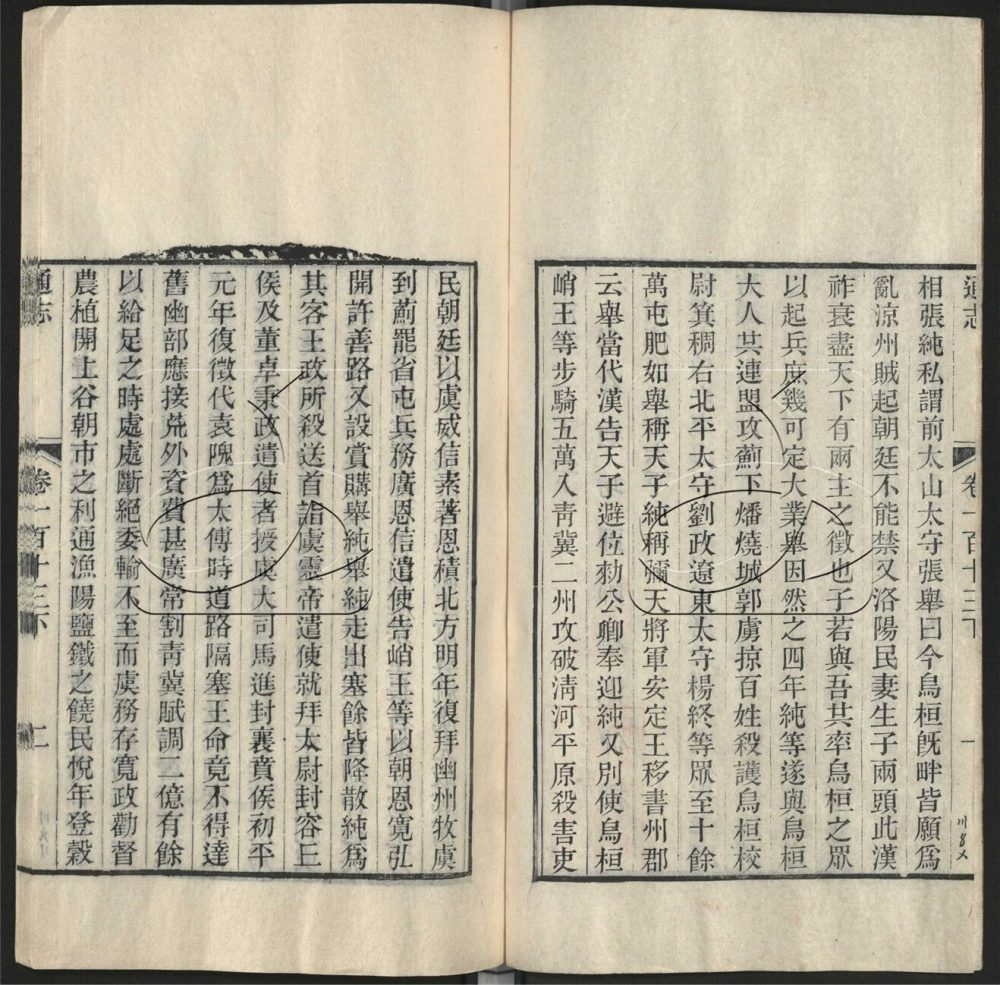 通志
卷一百十三下
一
相張純私謂前太山太守張舉曰今烏桓旣畔皆願爲
亂涼州賊起朝廷不能禁又洛陽民妻生子兩頭此漢
祚衰盡天下有兩主之徵也子若與吾共率烏桓之眾
以起兵庶幾可定大業舉因然之四年純等遂與烏桓
大人共連盟攻薊下燔燒城郭虜掠百姓殺護烏桓校
尉箕稠右北平太守劉政遼東太守楊終等眾至十餘
萬屯肥如舉稱天子純稱彌天將軍安定王移書州郡
云舉當代漢告天子避位勑公卿奉迎純又別使烏桓
峭王等步騎五萬入靑冀二州攻破淸河平原殺害吏
民朝廷以虞威信素著恩積北方明年復拜幽州牧虞
到薊罷省屯兵務廣恩信遣使告峭王等以朝恩寬弘
開許善路又設賞購舉純舉純走出塞餘皆降散純爲
其客王政所殺送首詣虞靈帝遣使就拜太尉封容丘
侯及董卓秉政遣使者授虞大司馬進封襄賁侯初平
元年復徵代袁隗爲太傅時道路隔塞王命竟不得達
舊幽部應接荒外資費甚廣常割靑冀賦調二億有餘
以給足之時處處斷絕委輸不至而虞務存寬政勸督
農植開上谷胡市之利通漁陽鹽鐵之饒民悅年登穀
通志
卷一百十三下
二